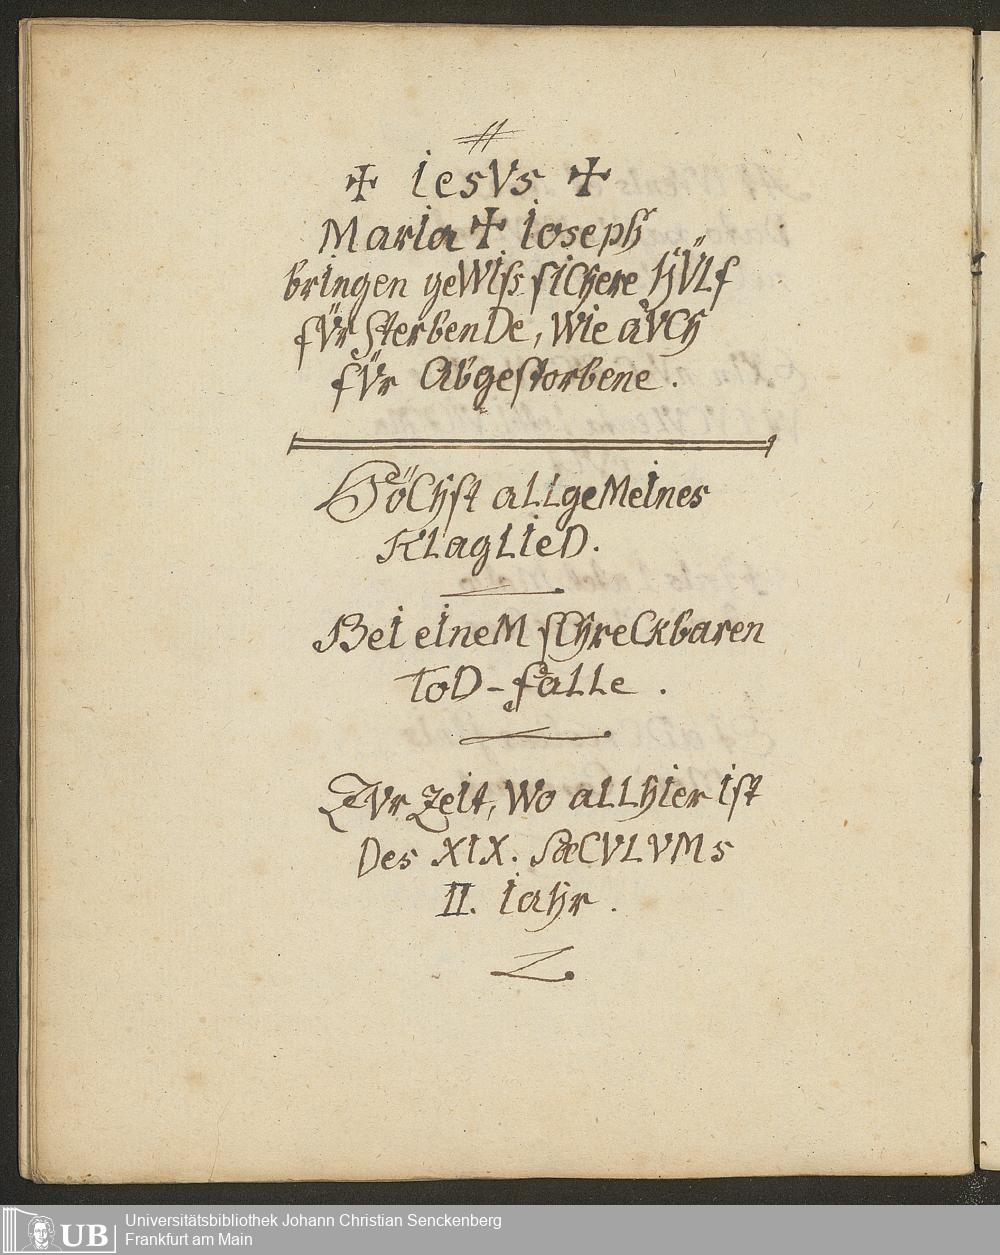 ✠ IesVs ✠
MarIa ✠ Ioseph
brIngen geWIſs ſIChere HÜLf
fÜr SterbenDe, WIe aVCh
fÜr Abgeſtorbene.
HöChſt aLLgeMeInes
KLagLIeD.
BeI eIneM ſChreCkbaren
ToD-faLLe.
ZVr ZeIt, Wo aLLhIer Iſt
Des XIX. SæCVLVMs
II. Iahr.
UB
Universitätsbibliothek Johann Christian Senckenberg
Frankfurt am Main